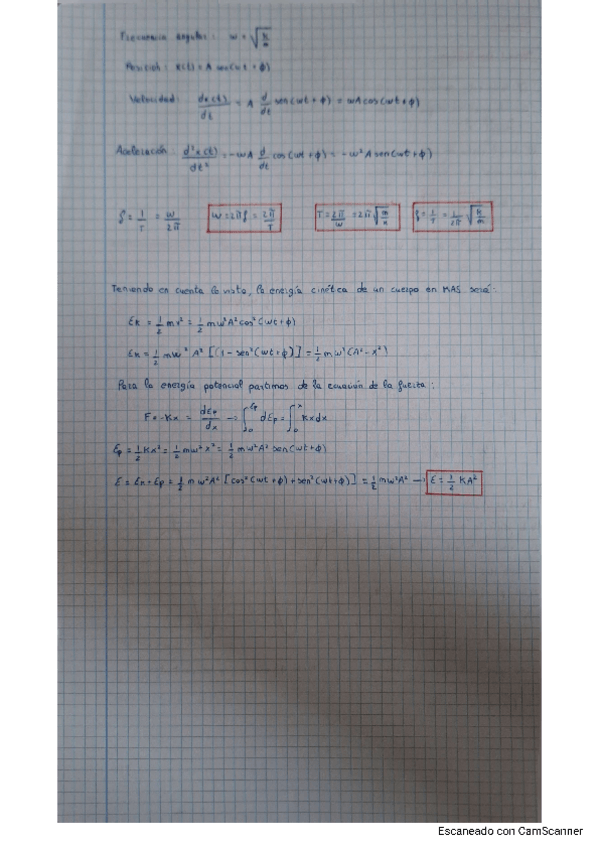 Frecuencia angular: ω = √(k/m)
Posición: x(t) = A sen(ωt + ϕ)
Velocidad: dx(t)/dt = A d/dt sen(ωt + ϕ) = ωA cos(ωt + ϕ)
Aceleración: d²x(t)/dt² = -ωA d/dt cos(ωt + ϕ) = -ω²A sen(ωt + ϕ)
f = 1/T = ω/2π   ω = 2πf = 2π/T   T = 2π/ω = 2π√(m/k)   f = 1/T = 1/2π √(k/m)
Teniendo en cuenta la nota, la energía cinética de un cuerpo en MAS será:
Ek = 1/2 mv² = 1/2 mω²A² cos²(ωt + ϕ)
Ek = 1/2 mω² A² [(1 - sen²(ωt + ϕ)] = 1/2 mω²(A² - x²)
Para la energía potencial partimos de la ecuación de la fuerza:
F = -Kx = dEp/dx → ∫₀^Ep dEp = ∫₀^x Kxdx
Ep = 1/2 Kx² = 1/2 mω²x² = 1/2 mω²A² sen(ωt + ϕ)
E = Ek + Ep = 1/2 mω²A² [cos²(ωt + ϕ) + sen²(ωt + ϕ)] = 1/2 mω²A² → E = 1/2 KA²
Escaneado con CamScanner